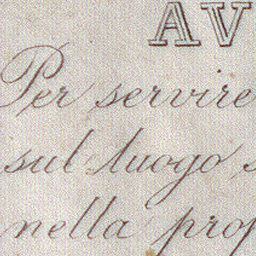 AV
Per servire
sul luogo s
nella prop